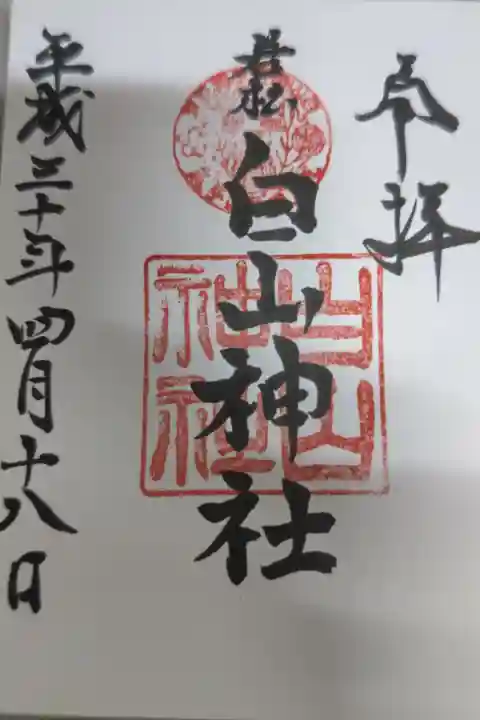 奉拝
若松
白山神社
白山
神社
平成三十年四月十八日